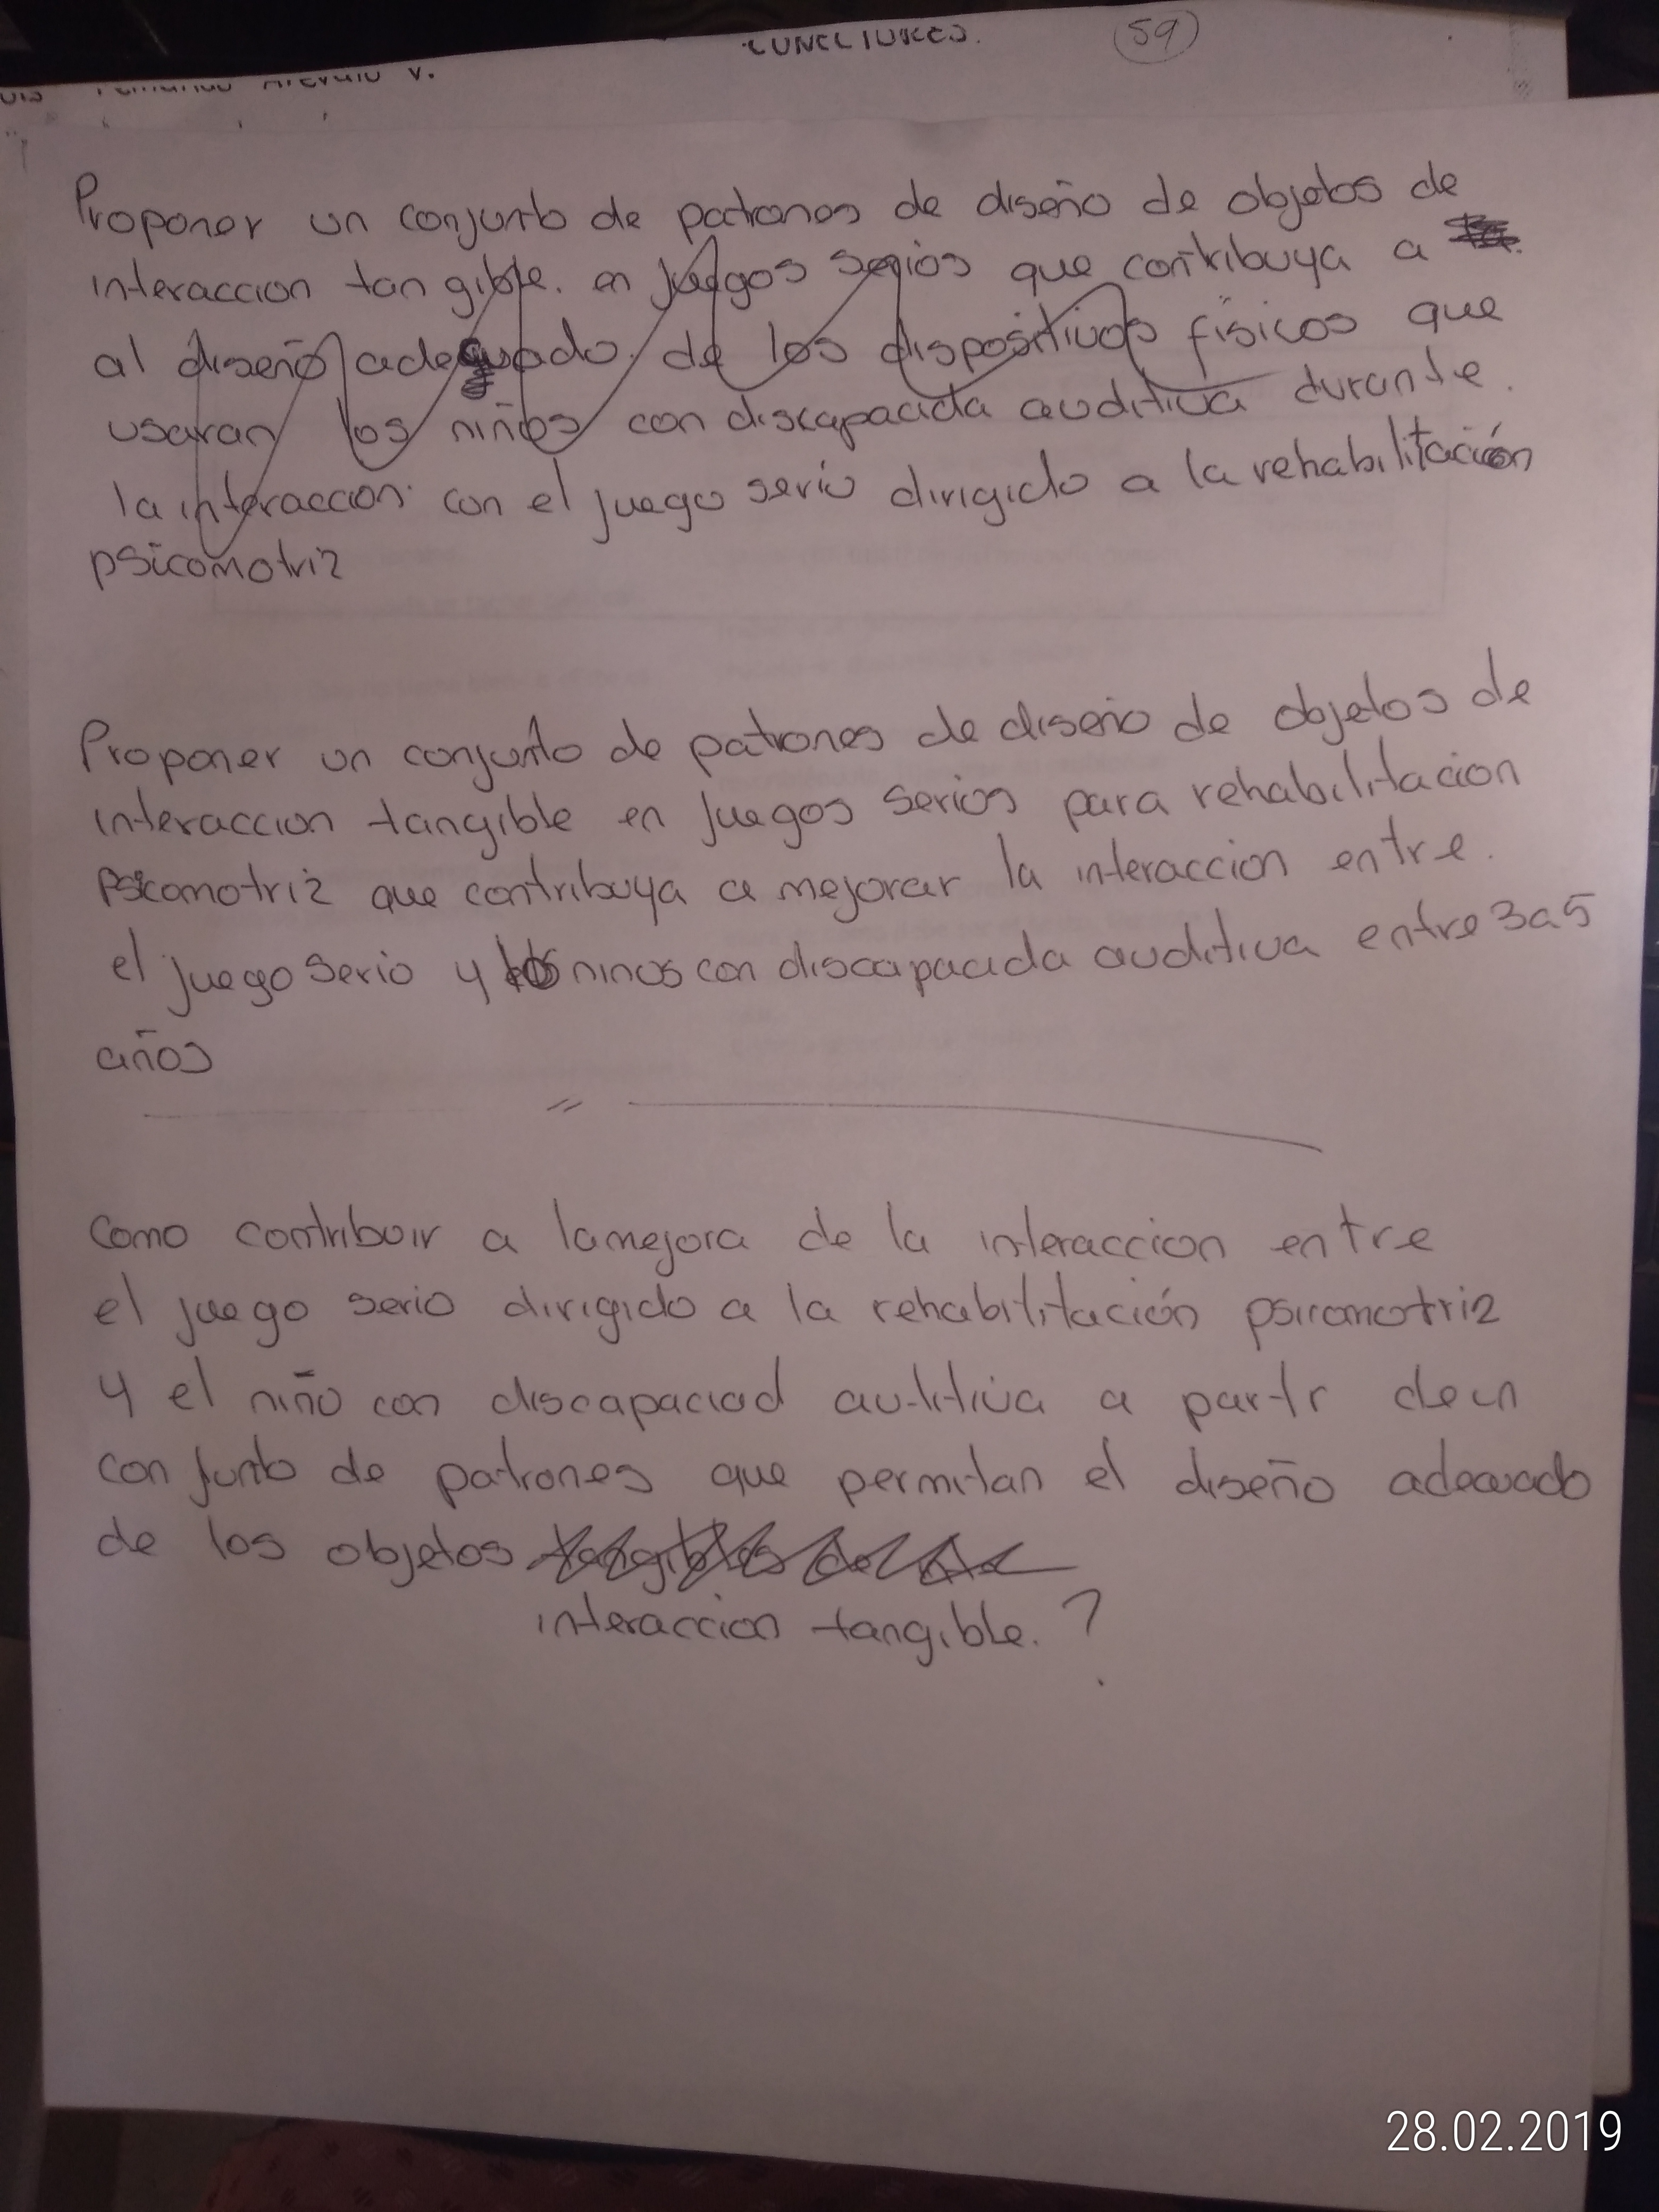 59
Proponer un conjunto de patrones de diseño de objetos de
interaccion tangible. en juegos serios que contribuya a
al diseño adecuado. de los dispositivos físicos que
usaran los niños con discapacida auditiva durante.
la interaccion con el juego serio dirigido a la rehabilitación
psicomotriz
Proponer un conjunto de patrones de diseño de objetos de
interaccion tangible en juegos serios para rehabilitacion
Psicomotriz que contribuya a mejorar la interaccion entre.
el juego serio y los ninos con discapacida auditiva entre 3 a 5
años
Como contribuir a la mejora de la interaccion entre
el juego serio dirigido a la rehabilitación psicomotriz
y el niño con discapaciad auditiva a partir de un
conjunto de patrones que permitan el diseño adecuado
de los objetos tangibles de
interaccion tangible. ?
28.02.2019